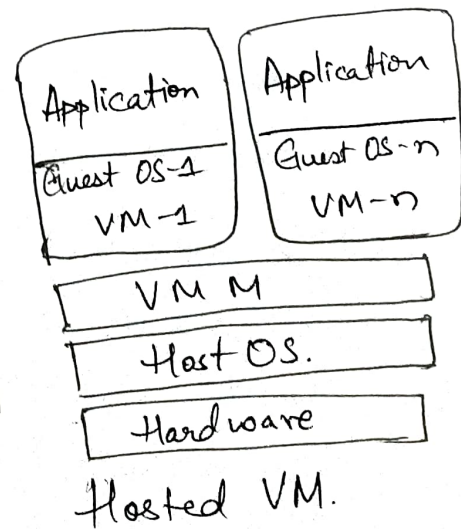 Application
Guest OS-1
VM-1
Application
Guest OS-n
VM-n
VM M
Host OS.
Hardware
Hosted VM.